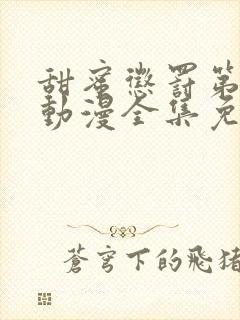 甜蜜懲罰第
動漫全集免
蒼穹下的飛豬